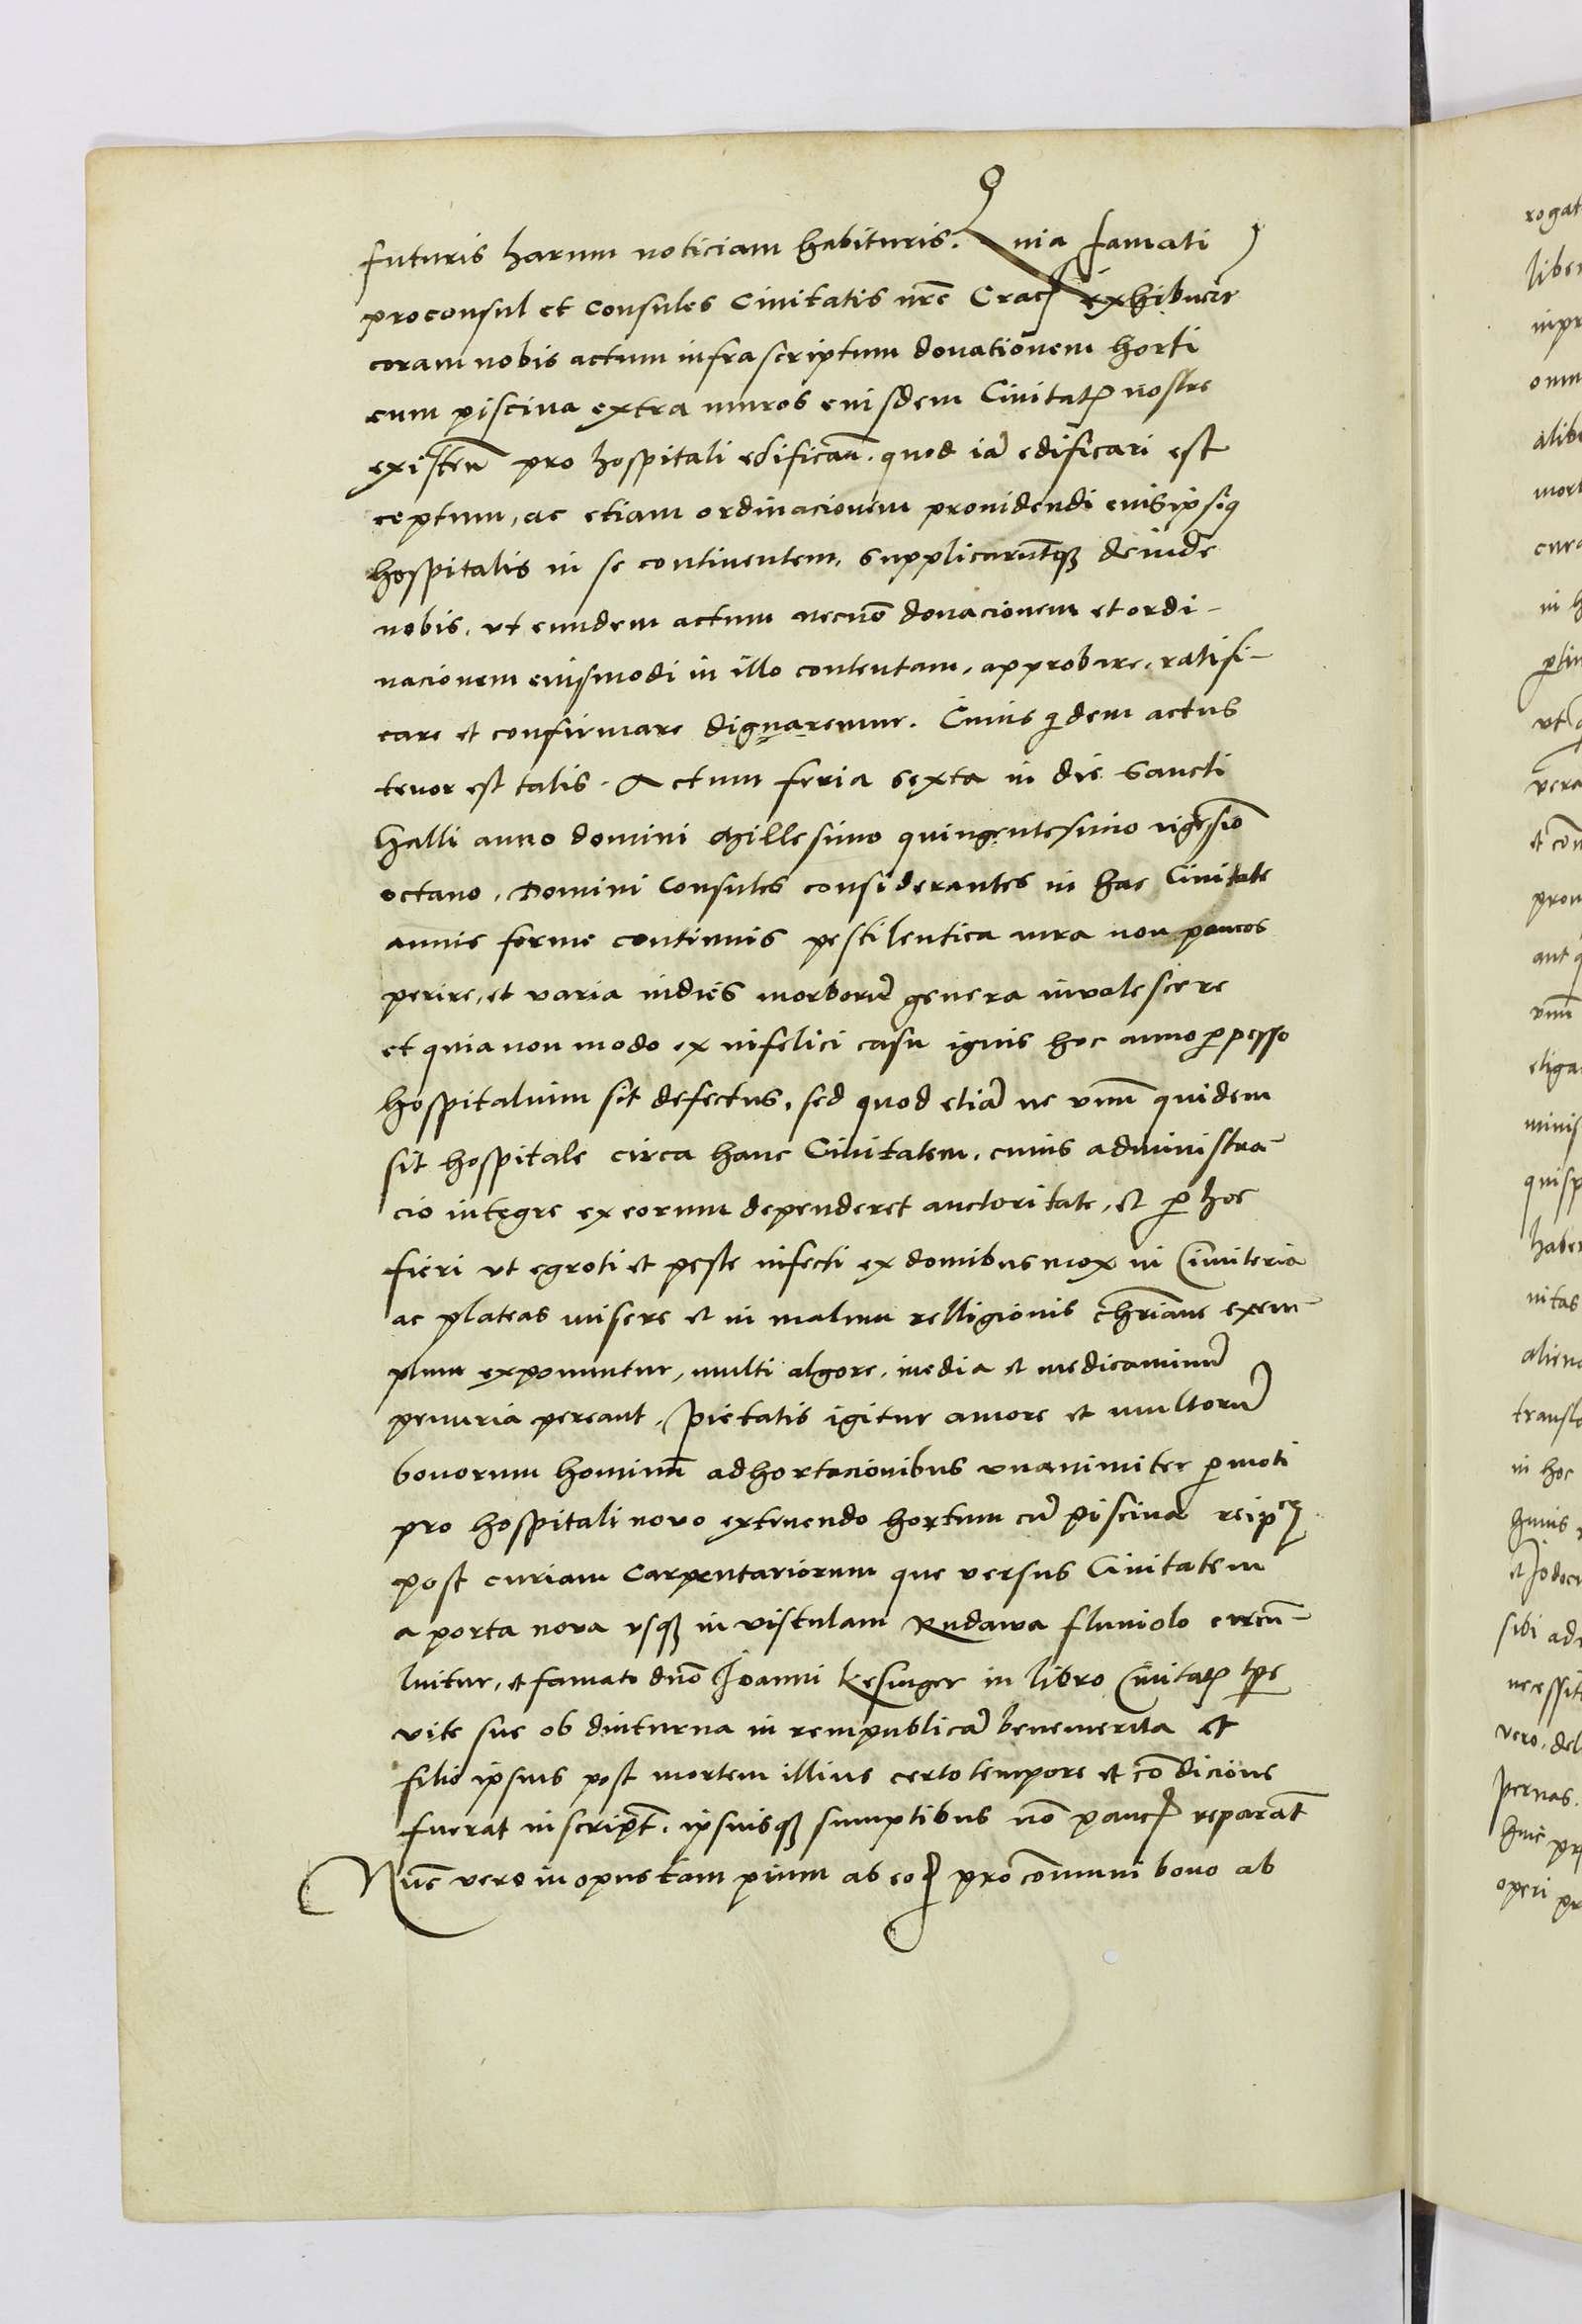 futuris harum noticiam habituris. Quia famati
proconsul et consules Civitatis nr̄e Crac̄ exhibuer̄
coram nobis actum infrascriptum donationem horti
cum piscina extra muros eiusdem Civitatꝭ nostre
existen̄ pro hospitali edifican̄. quod iā edificari est
ceptum, ac etiam ordinacionem providendi eius ipsiꝰ
hospitalis in se continentem, supplicarunt̄qꝫ deinde
nobis, ut eundem actum necnō donacionem et ordi-
nacionem eiusmodi in illo contentam, approbare, ratifi-
care et confirmare dignaremur. Cuius qͥdem actus
tenor est talis. Actum feria sexta in die Sancti
Halli anno domini Millesimo quingentesimo vigesīo
octavo. Domini Consules considerantes in hac Civitate
annis ferme continuis pestilentica lura non paucos
perire, et varia indies morborū genera invalescere
et quia non modo ex infelici casu ignis hoc anno ꝑpesso
hospitalium sit defectus, sed quod etiā ne unū quidem
sit hospitale circa hanc Civitatem, cuius administra-
cio integre ex eorum dependeret auctoritate, et ꝑ hoc
fieri ut egroti et peste infecti ex domibus mox in Cimiteria
ac plateas misere et in malum relligionis chr̄iane exem-
plum exponuntur, multi algore, inedia et medicaminū
penuria pereant, pietatis igitur amore et multorū
bonorum hominū adhortacionibus unanimiter ꝑmoti
pro hospitali novo extruendo hortum cū piscina reip͞cꝫ
post curiam Carpentariorum que versus Civitatem
a porta nova usqꝫ in vistulam Rudawa fluviolo circū-
luitur, et famato dn̄o Joanni Kesinger in libro Civitatꝭ tp̄e
vite sue ob diuturna in rempublicā benemerita et
filio ipsius post mortem illius certo tempore et cōdicione
fuerat inscript̄. ipsiusqꝫ sumptibus nō paucꝭ reparat̄
Nūc vero in opus tam pium ab eoꝭ pro cōmuni bono ab